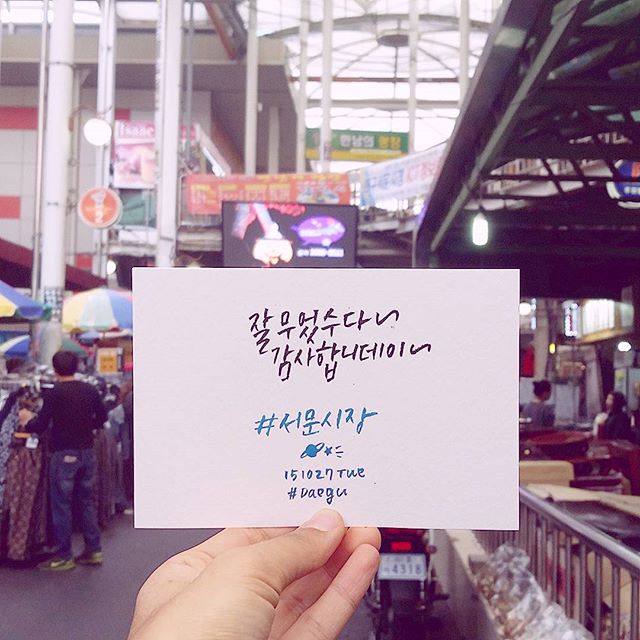 Isaac
만남의 광장
잘무었수다~
감사합니데이~
#서문시장
151027 Tue
#Daegu
4318